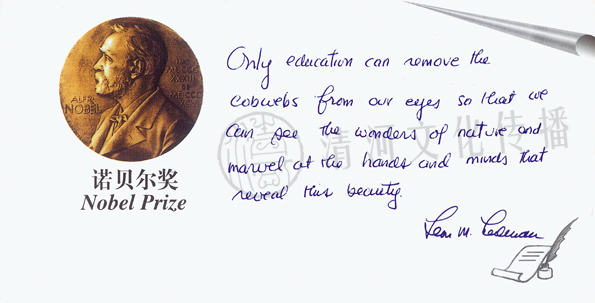 ALFR.
NOBEL
诺贝尔奖
Nobel Prize
Only education can remove the
cobwebs from our eyes so that we
can see the wonders of nature and
marvel at the hands and minds that
reveal this beauty.
Leon M. Lederman
清河文化传播